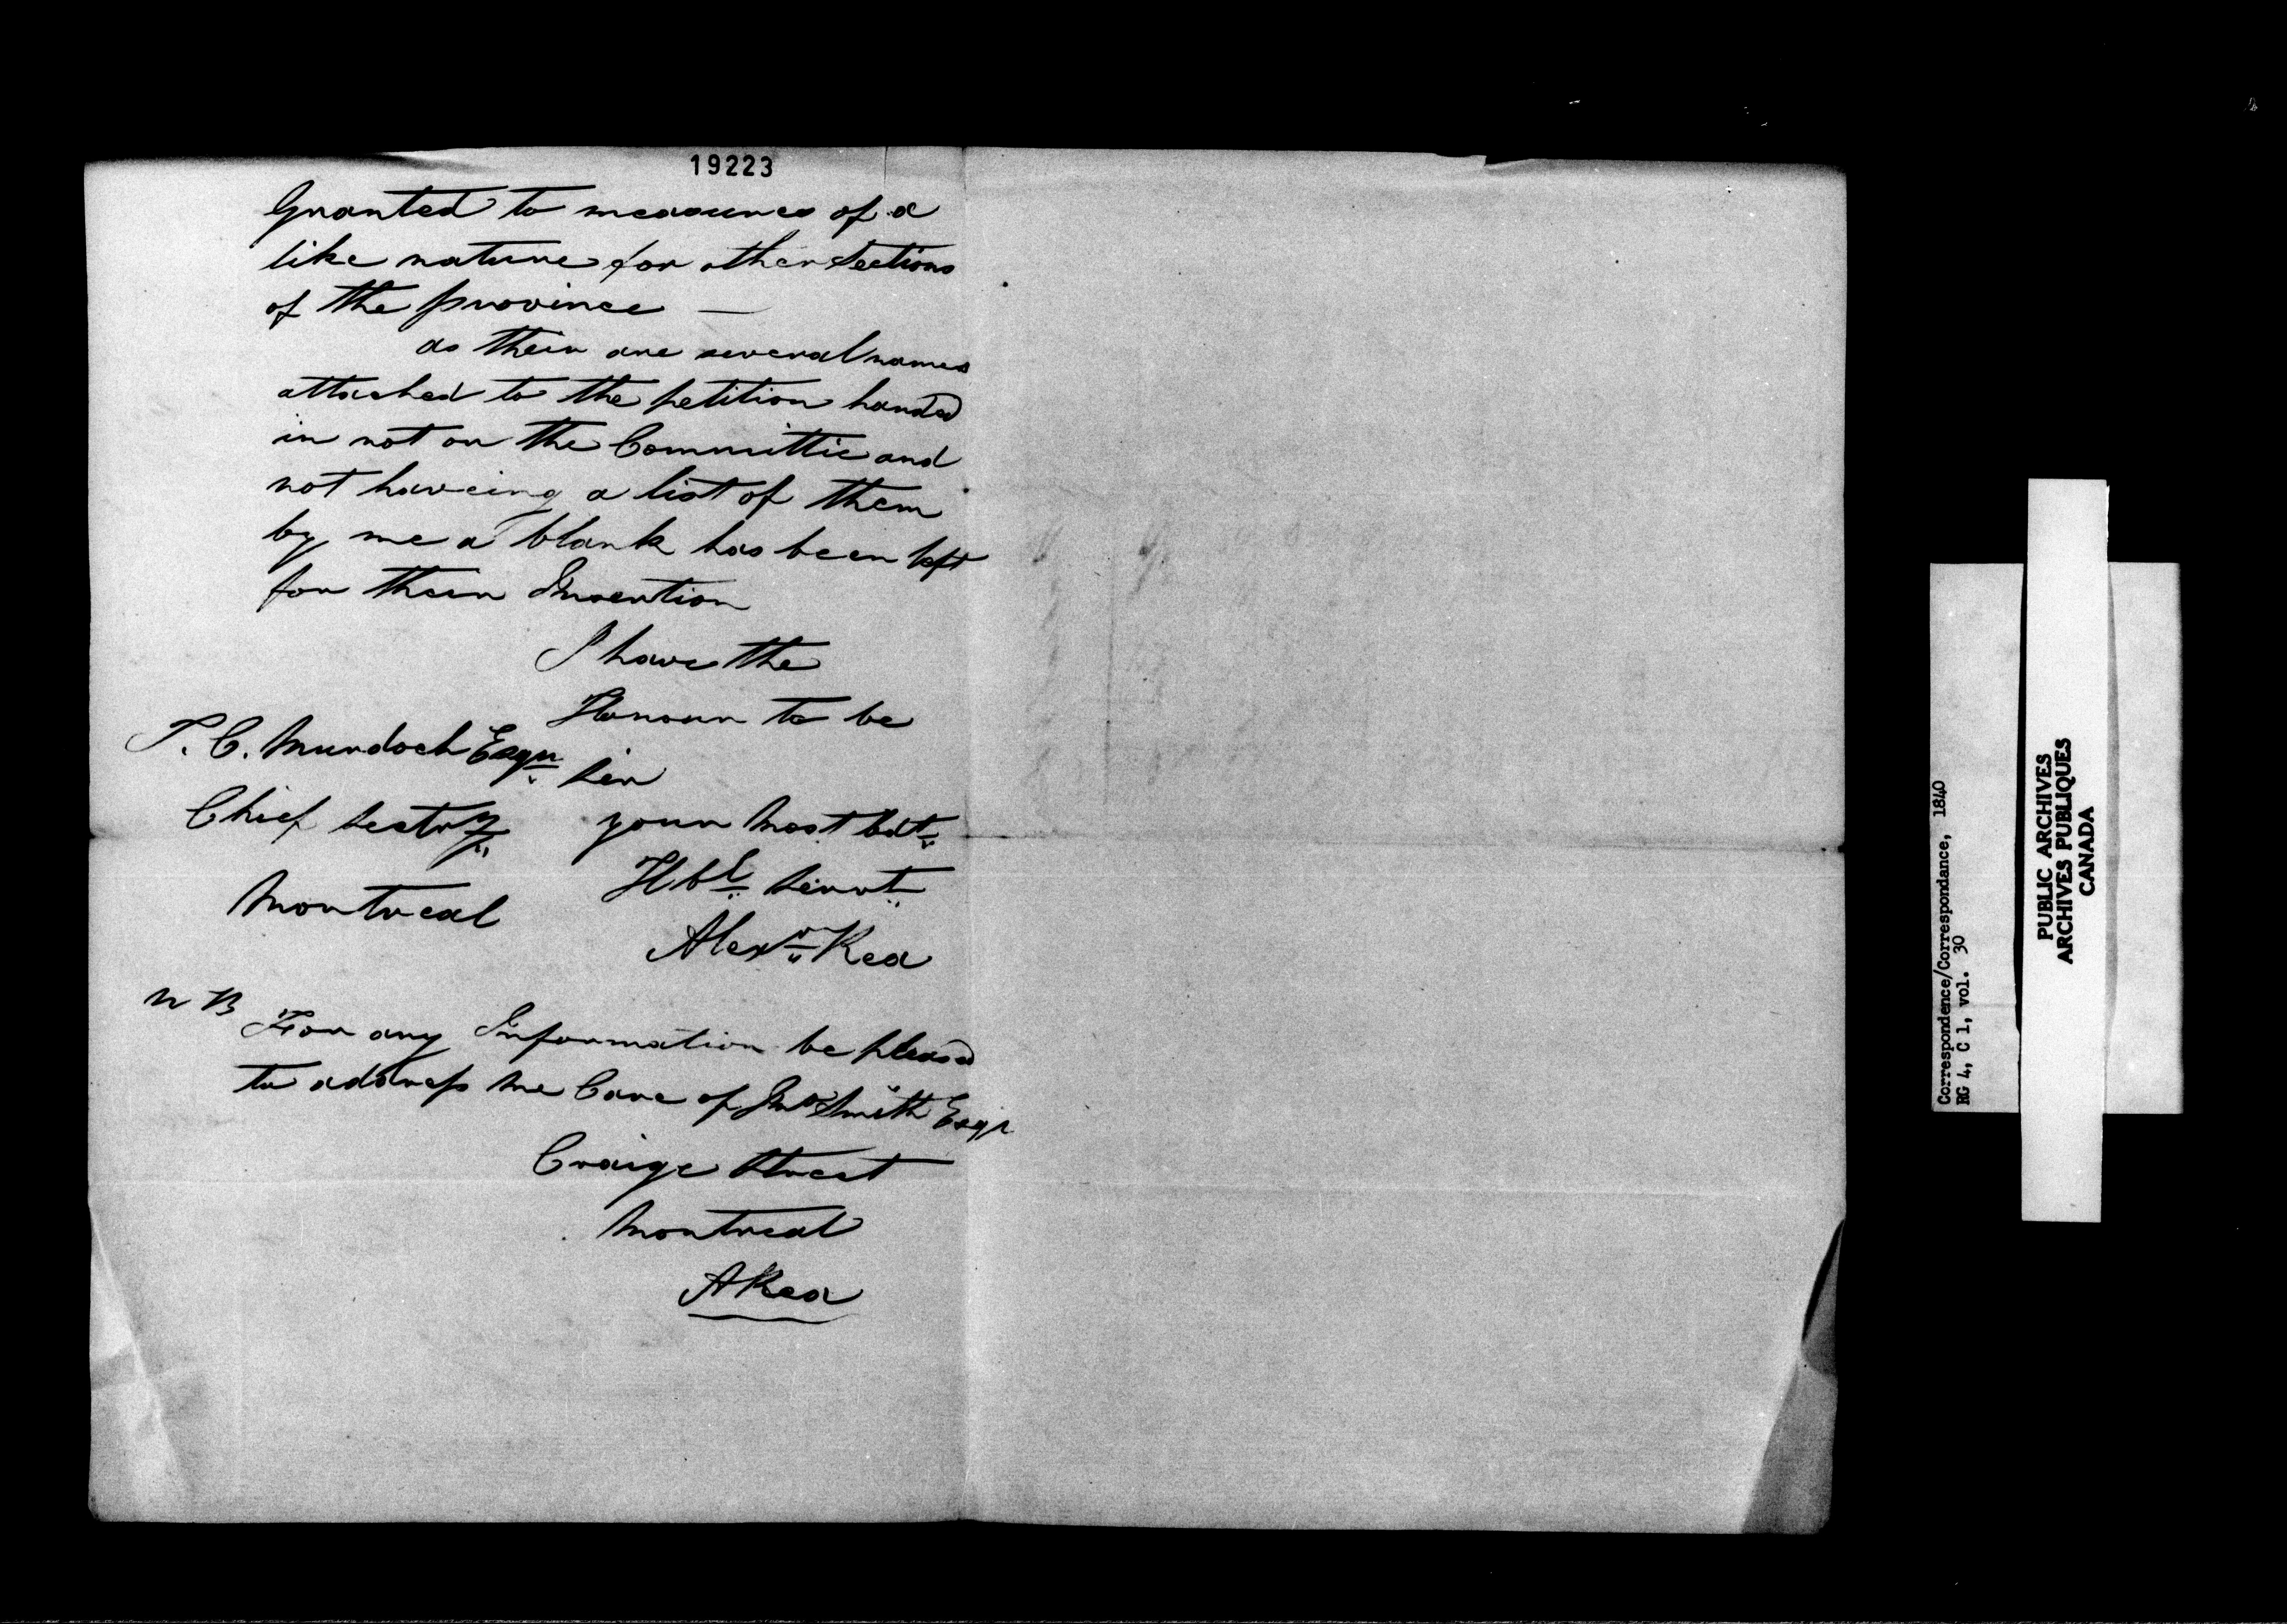 19223
Granted to measures of a
like nature for other Sections
of the province —
as their are several names
attached to the petition handed
in not on the Committie and
not haveing a list of them
by me a blank has been left
for their Insertion
I have the
Honour to be
Sir
your Most Obt
Hbl Servt
Alexr Rea
T. C. Murdoch Esqr
Chief Sectry
Montreal
N B For any Information be pleasd
to address me Care of Jno Smith Esqr
Craige Street
Montreal
A Rea
Correspondence/Correspondance, 1840
RG 4, C 1, vol. 30
PUBLIC ARCHIVES
ARCHIVES PUBLIQUES
CANADA